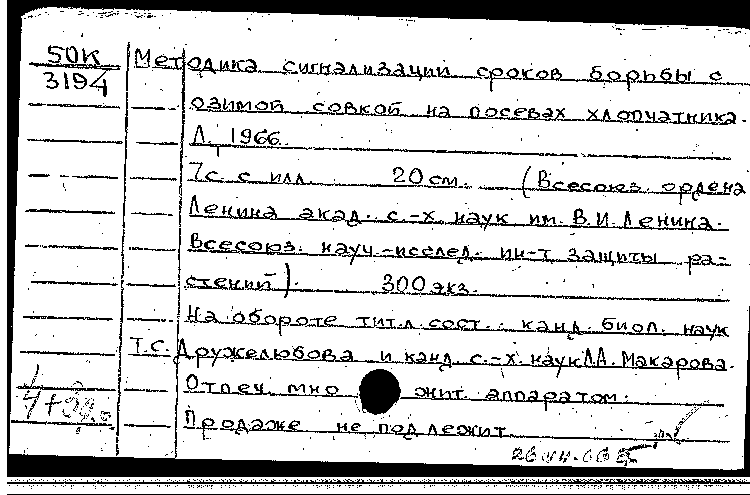 50К
3194
Методика сигнализации сроков борьбы с
озимой совкой на посевах хлопчатника.
Л., 1966.
7с. с илл. 20 см. (Всесоюз. ордена
Ленина акад. с.-х. наук им. В.И.Ленина.
Всесоюз. науч.-исслед. ин-т защиты ра-
стений). 300 экз.
На обороте тит.л. сост.: канд. биол. наук
Т.С. Дружелюбова и канд. с.-х. наук Л.А. Макарова.
Отпеч. мно жит. аппаратом.
Продаже не подлежит